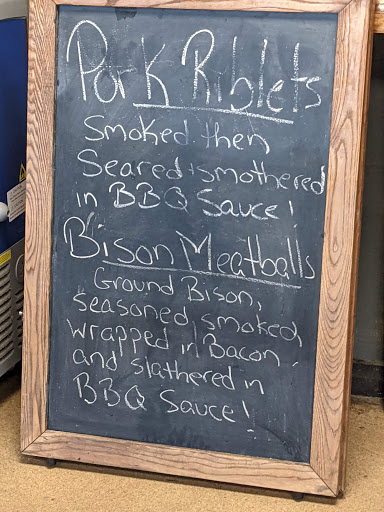 Pork Riblets
Smoked then
Seared + smothered
in BBQ Sauce!
Bison Meatballs
Ground Bison,
seasoned, smoked,
wrapped in Bacon
and slathered in
BBQ Sauce!